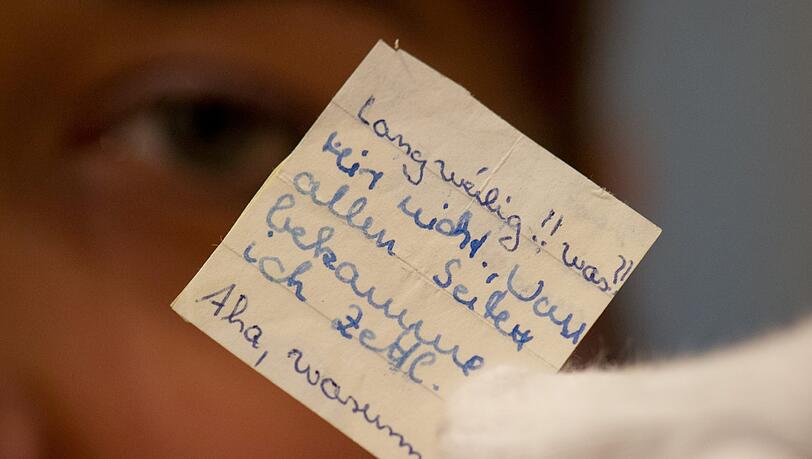 Langweilig!! was?
Mir nicht. Von
allen Seiten
bekomme
ich Zettl.
Aha, warum